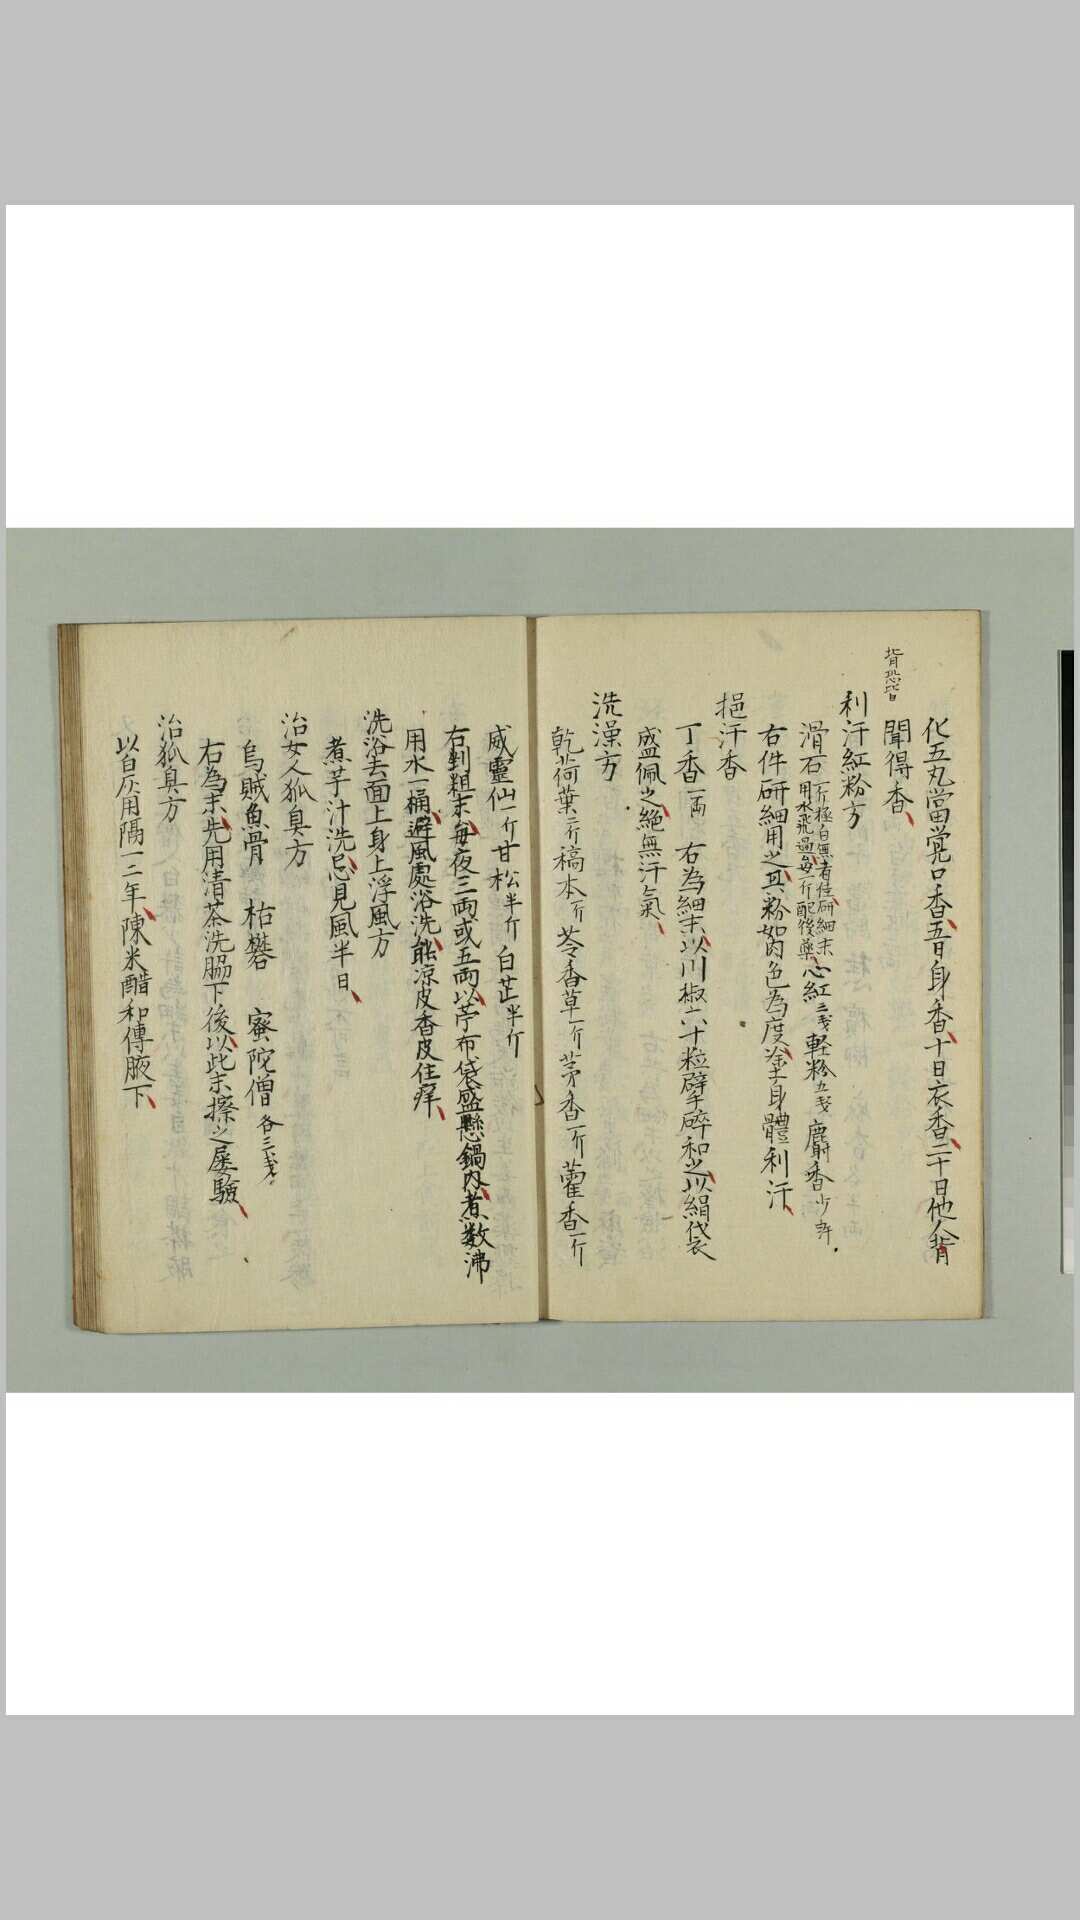 化五丸當覚口香五日身香十日衣香二十日他人背
聞得香
背恐皆
利汗紅粉方
滑石一斤極白無者佳研細末用水飛過每一斤配後藥心紅三戋軽粉五戋麝香少許
右件研細用之其粉如肉色為度塗身體利汗
挹汗香
丁香一両 右為細末以川椒六十粒擘碎和之以絹袋
盛佩之絕無汗氣
洗澡方
乾荷葉二斤稿本一斤苓香草一斤茅香一斤藿香一斤
威靈仙一斤甘松半斤白芷半斤
右剉粗末每夜三両或五両以苧布袋盛懸鍋內煮数沸
用水一桶避風處浴洗能凉皮香皮住痒
洗浴去面上身上浮風方
煮芋汁洗忌見風半日
治女人狐臭方
烏賊魚骨 枯礬 蜜陀僧各三戋
右為末先用清茶洗脇下後以此末擦之屡驗
治狐臭方
以白灰用隔一二年陳米醋和傳腋下